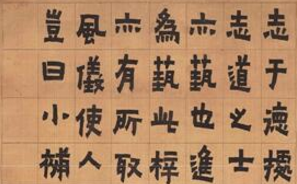 志于德據
志道之士
亦藝也進
為藝此梓
亦有所取
風儀使人
豈曰小補